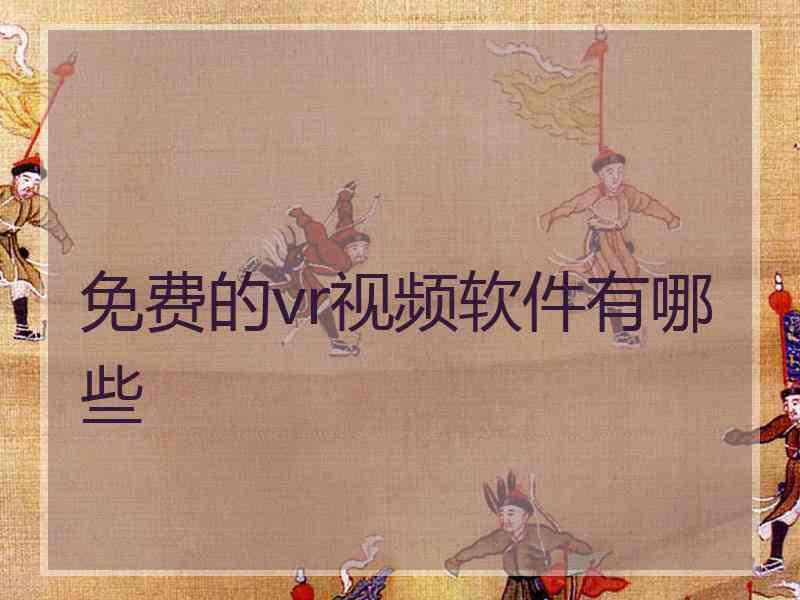 免费的vr视频软件有哪
些